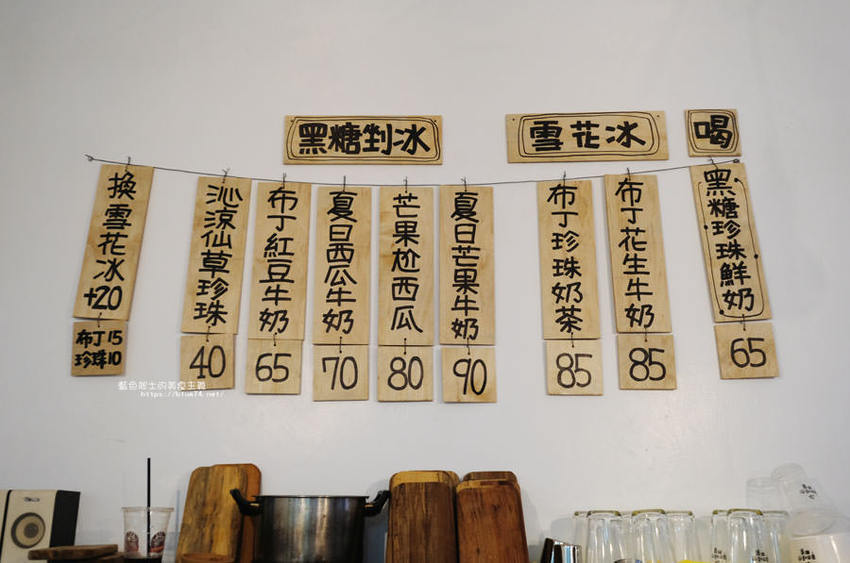 黑糖剉冰
雪花冰
喝
換雪花冰+20
布丁15
珍珠10
沁涼仙草珍珠
40
布丁紅豆牛奶
65
夏日西瓜牛奶
70
芒果尬西瓜
80
夏日芒果牛奶
90
布丁珍珠奶茶
85
布丁花生牛奶
85
黑糖珍珠鮮奶
65
藍色起士的美食主義
https://blue74.net/